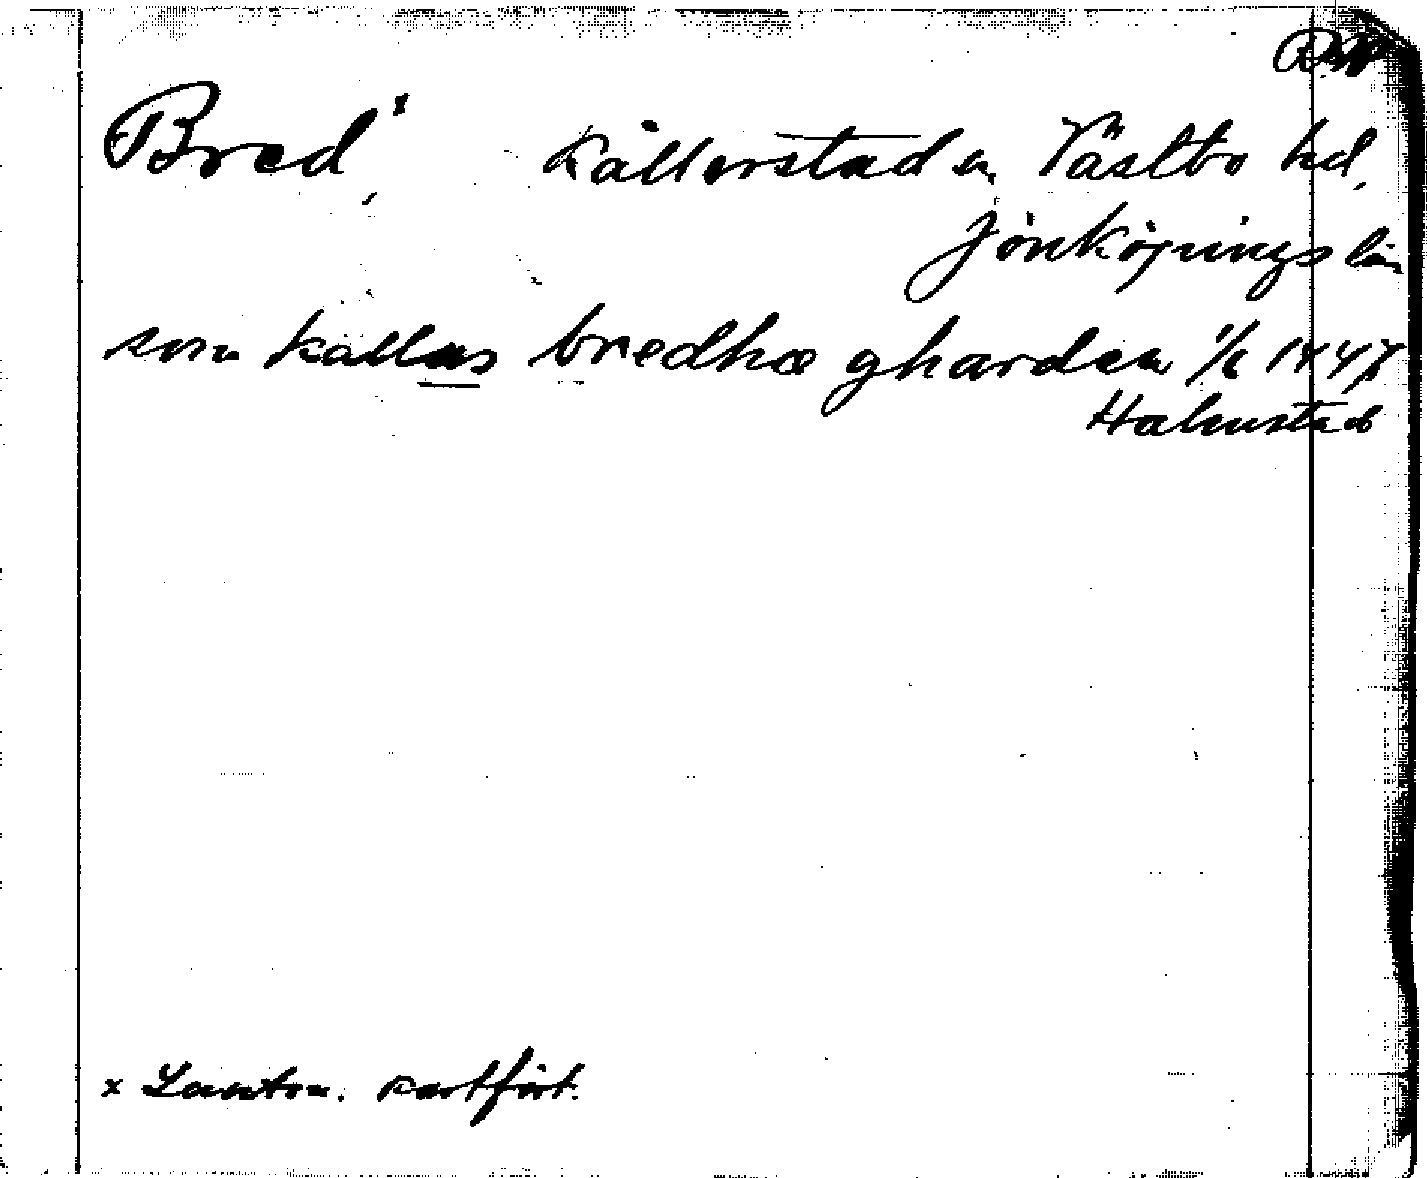 Bred,ˣ Källerstad sn, Västbo hd,
Jönköpings län
som kallas bredhæ gharden 1/6 1447
Halmstad
x Lantm. kartfört.